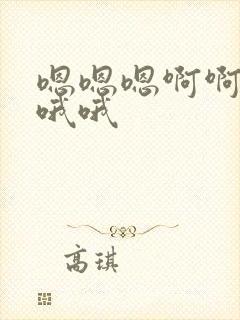 嗯嗯嗯啊啊
哦哦
高琪